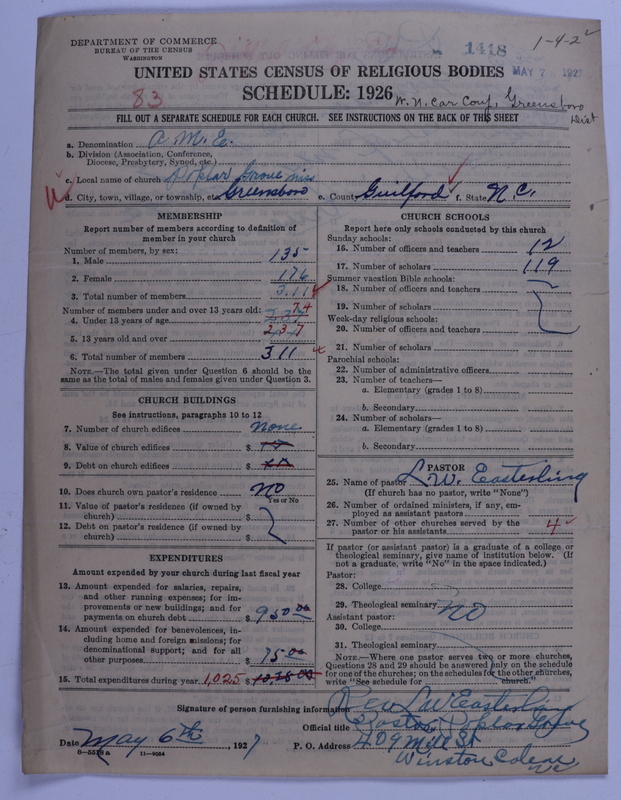 DEPARTMENT OF COMMERCE
BUREAU OF THE CENSUS
WASHINGTON
1418
1-4-2
MAY 7 1927
UNITED STATES CENSUS OF RELIGIOUS BODIES
83
SCHEDULE: 1926
W. N. Car Conf, Greensboro Dist
FILL OUT A SEPARATE SCHEDULE FOR EACH CHURCH. SEE INSTRUCTIONS ON THE BACK OF THIS SHEET
a. Denomination A. M. E.
b. Division (Association, Conference, Diocese, Presbytery, Synod, etc.)
c. Local name of church Poplar Grove Miss
d. City, town, village, or township, etc. Greensboro e. County Guilford f. State N. C.
MEMBERSHIP
Report number of members according to definition of member in your church
Number of members, by sex:
1. Male 135
2. Female 176
3. Total number of members 311
Number of members under and over 13 years old:
4. Under 13 years of age 74
5. 13 years old and over 237
6. Total number of members 311
NOTE.—The total given under Question 6 should be the same as the total of males and females given under Question 3.
CHURCH BUILDINGS
See instructions, paragraphs 10 to 12
7. Number of church edifices None
8. Value of church edifices $
9. Debt on church edifices $
10. Does church own pastor's residence No
Yes or No
11. Value of pastor's residence (if owned by church) $
12. Debt on pastor's residence (if owned by church) $
EXPENDITURES
Amount expended by your church during last fiscal year
13. Amount expended for salaries, repairs, and other running expenses; for improvements or new buildings; and for payments on church debt $ 950.00
14. Amount expended for benevolences, including home and foreign missions; for denominational support; and for all other purposes $ 75.00
15. Total expenditures during year 1,025 $
CHURCH SCHOOLS
Report here only schools conducted by this church
Sunday schools:
16. Number of officers and teachers 12
17. Number of scholars 119
Summer vacation Bible schools:
18. Number of officers and teachers
19. Number of scholars
Week-day religious schools:
20. Number of officers and teachers
21. Number of scholars
Parochial schools:
22. Number of administrative officers
23. Number of teachers—
a. Elementary (grades 1 to 8)
b. Secondary
24. Number of scholars—
a. Elementary (grades 1 to 8)
b. Secondary
PASTOR
25. Name of pastor L. W. Easterling
(If church has no pastor, write "None")
26. Number of ordained ministers, if any, employed as assistant pastors
27. Number of other churches served by the pastor or his assistants 4
If pastor (or assistant pastor) is a graduate of a college or theological seminary, give name of institution below. (If not a graduate, write "No" in the space indicated.)
Pastor:
28. College
29. Theological seminary No
Assistant pastor:
30. College
31. Theological seminary
NOTE.—Where one pastor serves two or more churches, Questions 28 and 29 should be answered only on the schedule for one of the churches; on the schedules for the other churches, write "See schedule for church."
Signature of person furnishing information Rev L W Easterling
Official title Pastor Poplar Grove
Date May 6th, 1927 P. O. Address 409 Mill St
8-5518a 11-9054
Winston Salem NC